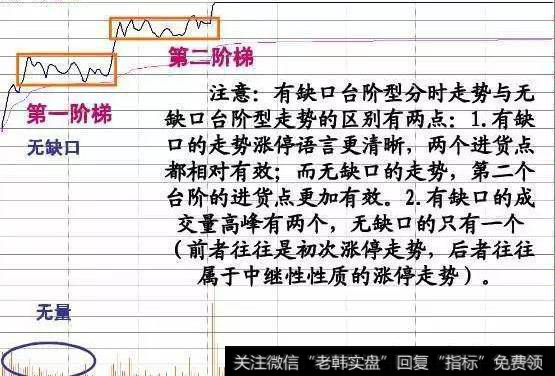 第二阶梯
第一阶梯
无缺口
注意：有缺口台阶型分时走势与无
缺口台阶型走势的区别有两点：1.有缺
口的走势涨停语言更清晰，两个进货点
都相对有效；而无缺口的走势，第二个
台阶的进货点更加有效。2.有缺口的成
交量高峰有两个，无缺口的只有一个
（前者往往是初次涨停走势，后者往往
属于中继性性质的涨停走势）。
无量
关注微信"老韩实盘"回复"指标"免费领